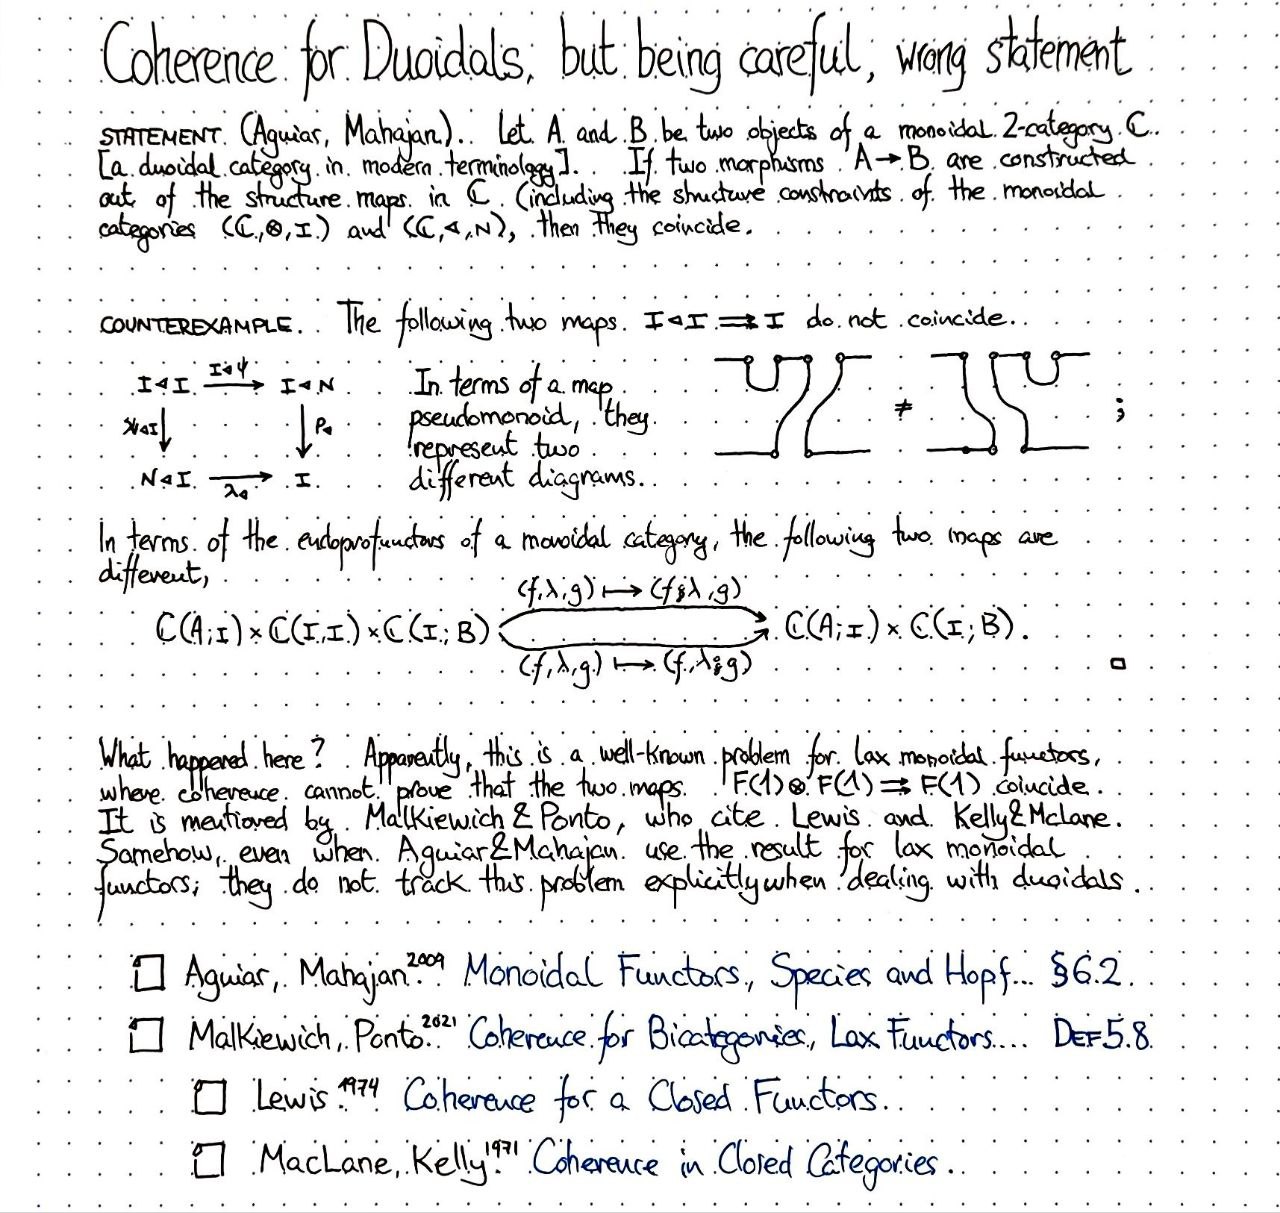 Coherence for Duoidals, but being careful, wrong statement
STATEMENT. (Aguiar, Mahajan). Let A and B be two objects of a monoidal 2-category ℂ.
[a duoidal category in modern terminology]. If two morphisms A→B are constructed
out of the structure maps in ℂ (including the structure constraints of the monoidal
categories (ℂ,⊗,I) and (ℂ,◁,N), then they coincide.
COUNTEREXAMPLE. The following two maps I◁I ⇉ I do not coincide.
I◁I —I◁ψ→ I◁N
ψ◁I ↓ ↓ ρ◁
N◁I —λ◁→ I
In terms of a map
pseudomonoid, they
represent two
different diagrams.
≠ ;
In terms of the endoprofunctors of a monoidal category, the following two maps are
different,
(f,λ,g) ↦ (f⨾λ,g)
ℂ(A;I) × ℂ(I;I) × ℂ(I;B) ℂ(A;I) × ℂ(I;B).
(f,λ,g) ↦ (f,λ⨾g)
□
What happened here? Apparently, this is a well-known problem for lax monoidal functors,
where coherence cannot prove that the two maps F(1)⊗F(1) ⇉ F(1) coincide.
It is mentioned by Malkiewich & Ponto, who cite Lewis and Kelly&McLane.
Somehow, even when Aguiar&Mahajan use the result for lax monoidal
functors; they do not track this problem explicitly when dealing with duoidals.
Aguiar, Mahajan. 2009 Monoidal Functors, Species and Hopf... §6.2.
Malkiewich, Ponto. 2021 Coherence for Bicategories, Lax Functors.... DEF 5.8.
Lewis. 1974 Coherence for a Closed Functors.
MacLane, Kelly. 1971 Coherence in Closed Categories.